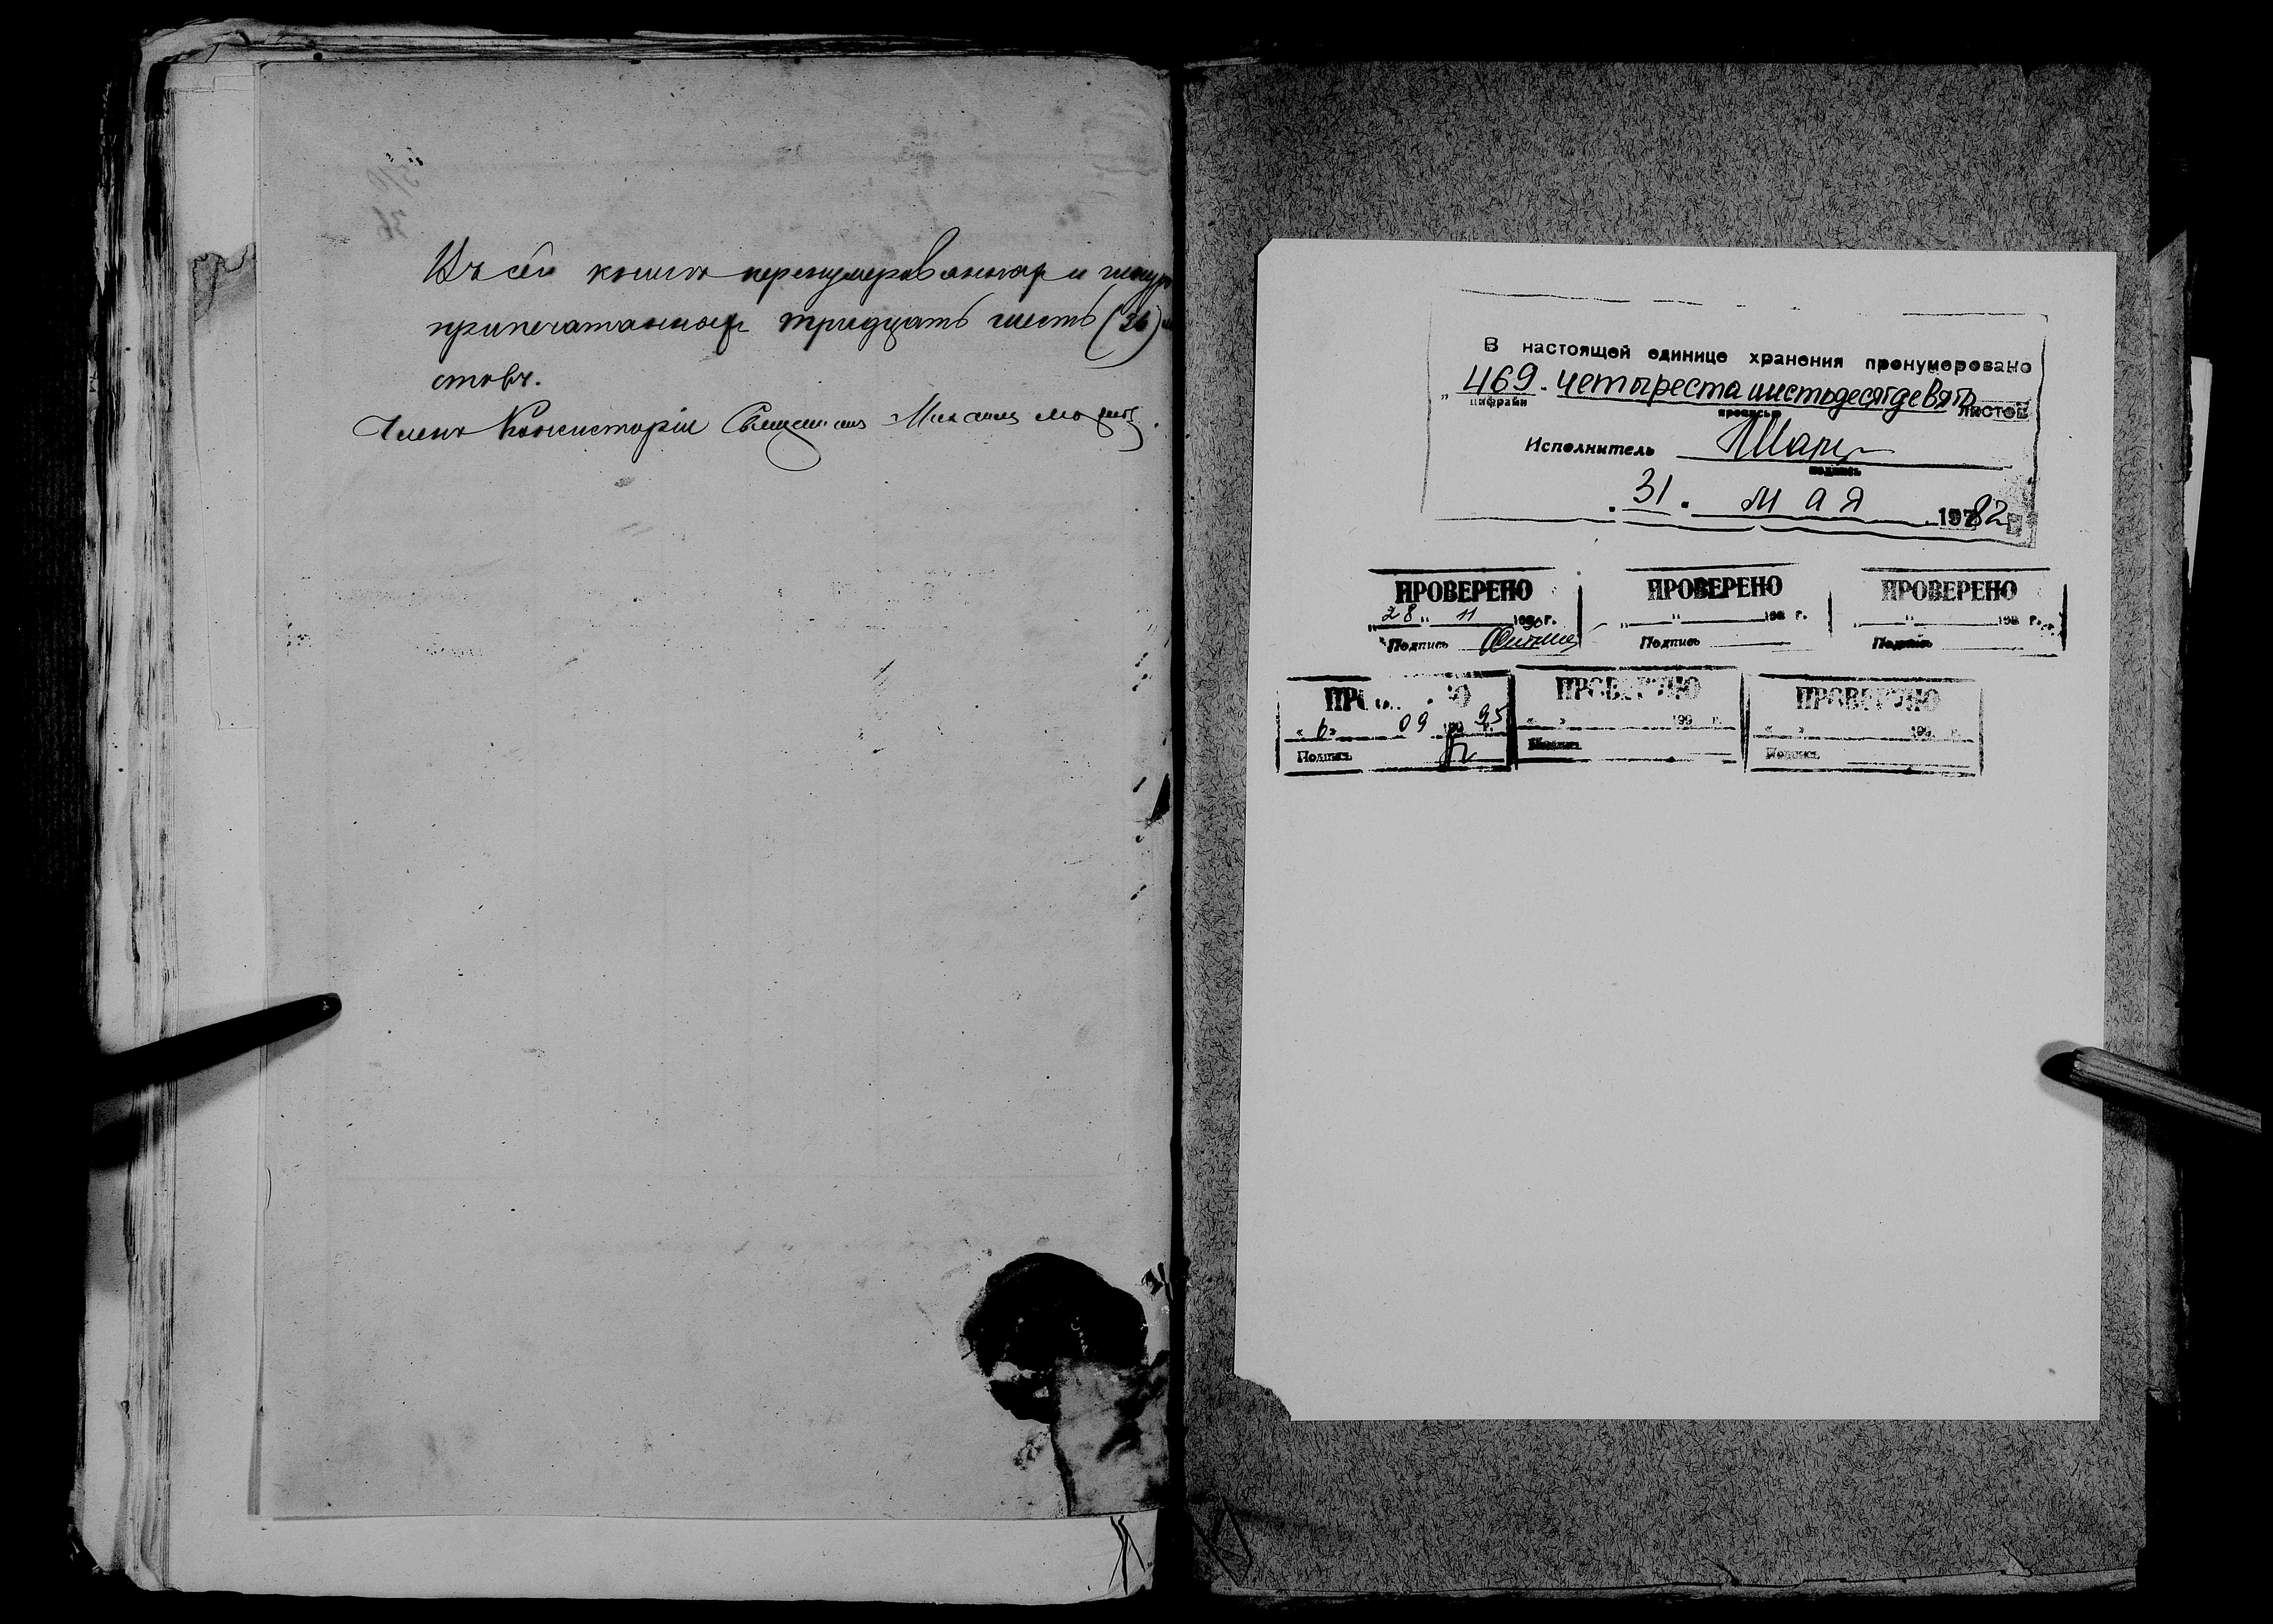 Въ сей книгѣ перенумерованныхъ и шнур
припечатанныхъ тридцать шесть (36) ли
стовъ.
Членъ Консисторіи Священникъ Михаилъ
В настоящей единице хранения пронумеровано
„ 469. четыреста шестьдесят девять листов
цифрами прописью
Исполнитель
подпись
. 31 . мая 1982 г.
ПРОВЕРЕНО ПРОВЕРЕНО ПРОВЕРЕНО
„ 28 „ 11 1990 г. „ " 198 г. „ " 198 г.
Подпись Подпись Подпись
ПРО О ПРОВЕРЕНО ПРОВЕРЕНО
« 6 » 09 1995 г. « » 199 г. « » 199 г.
Подпись Подпись Подпись